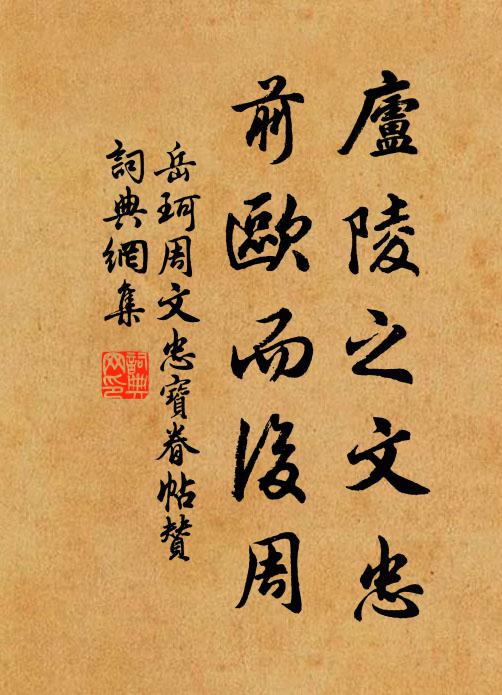 廬陵之文忠
前歐而後周
岳珂周文忠寶眷帖贊
詞典網集
詞典網印